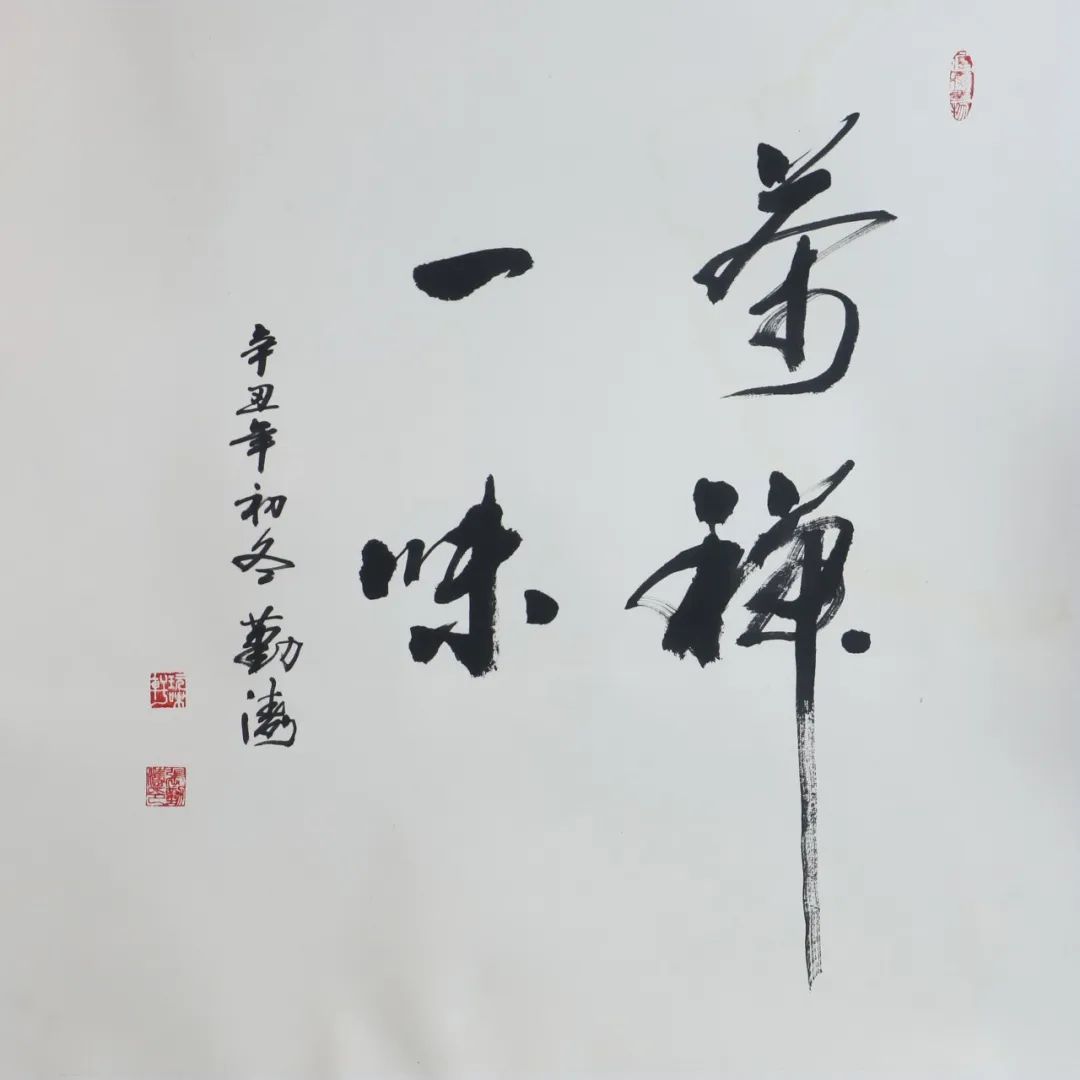 茶禅
一味
辛丑年初冬 勤涛